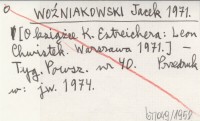 WOŹNIAKOWSKI Jacek 1971.
[O książce K. Estreichera: Leon
Chwistek. Warszawa 1971.] —
Tyg. Powsz. nr 40. Przedruk
w: jw. 1974.